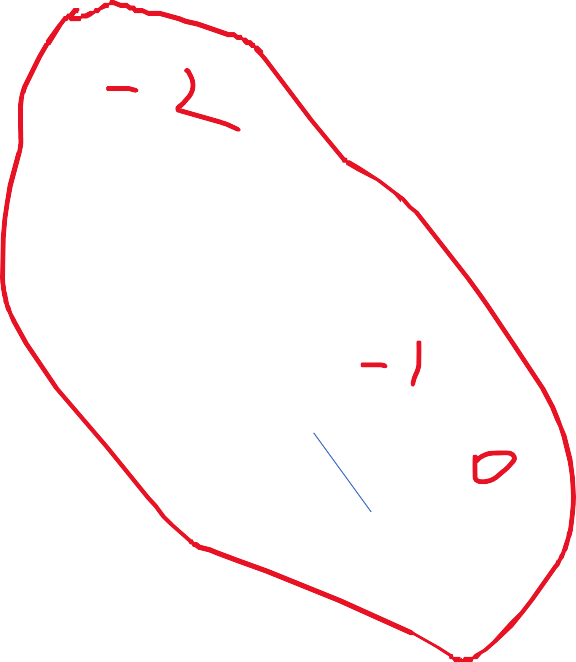 - 2
- 1
0